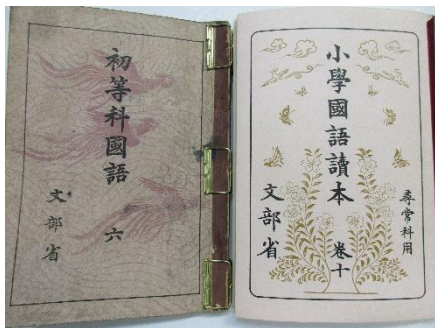 初等科國語
六
文部省
小學國語讀本
卷十
尋常科用
文部省